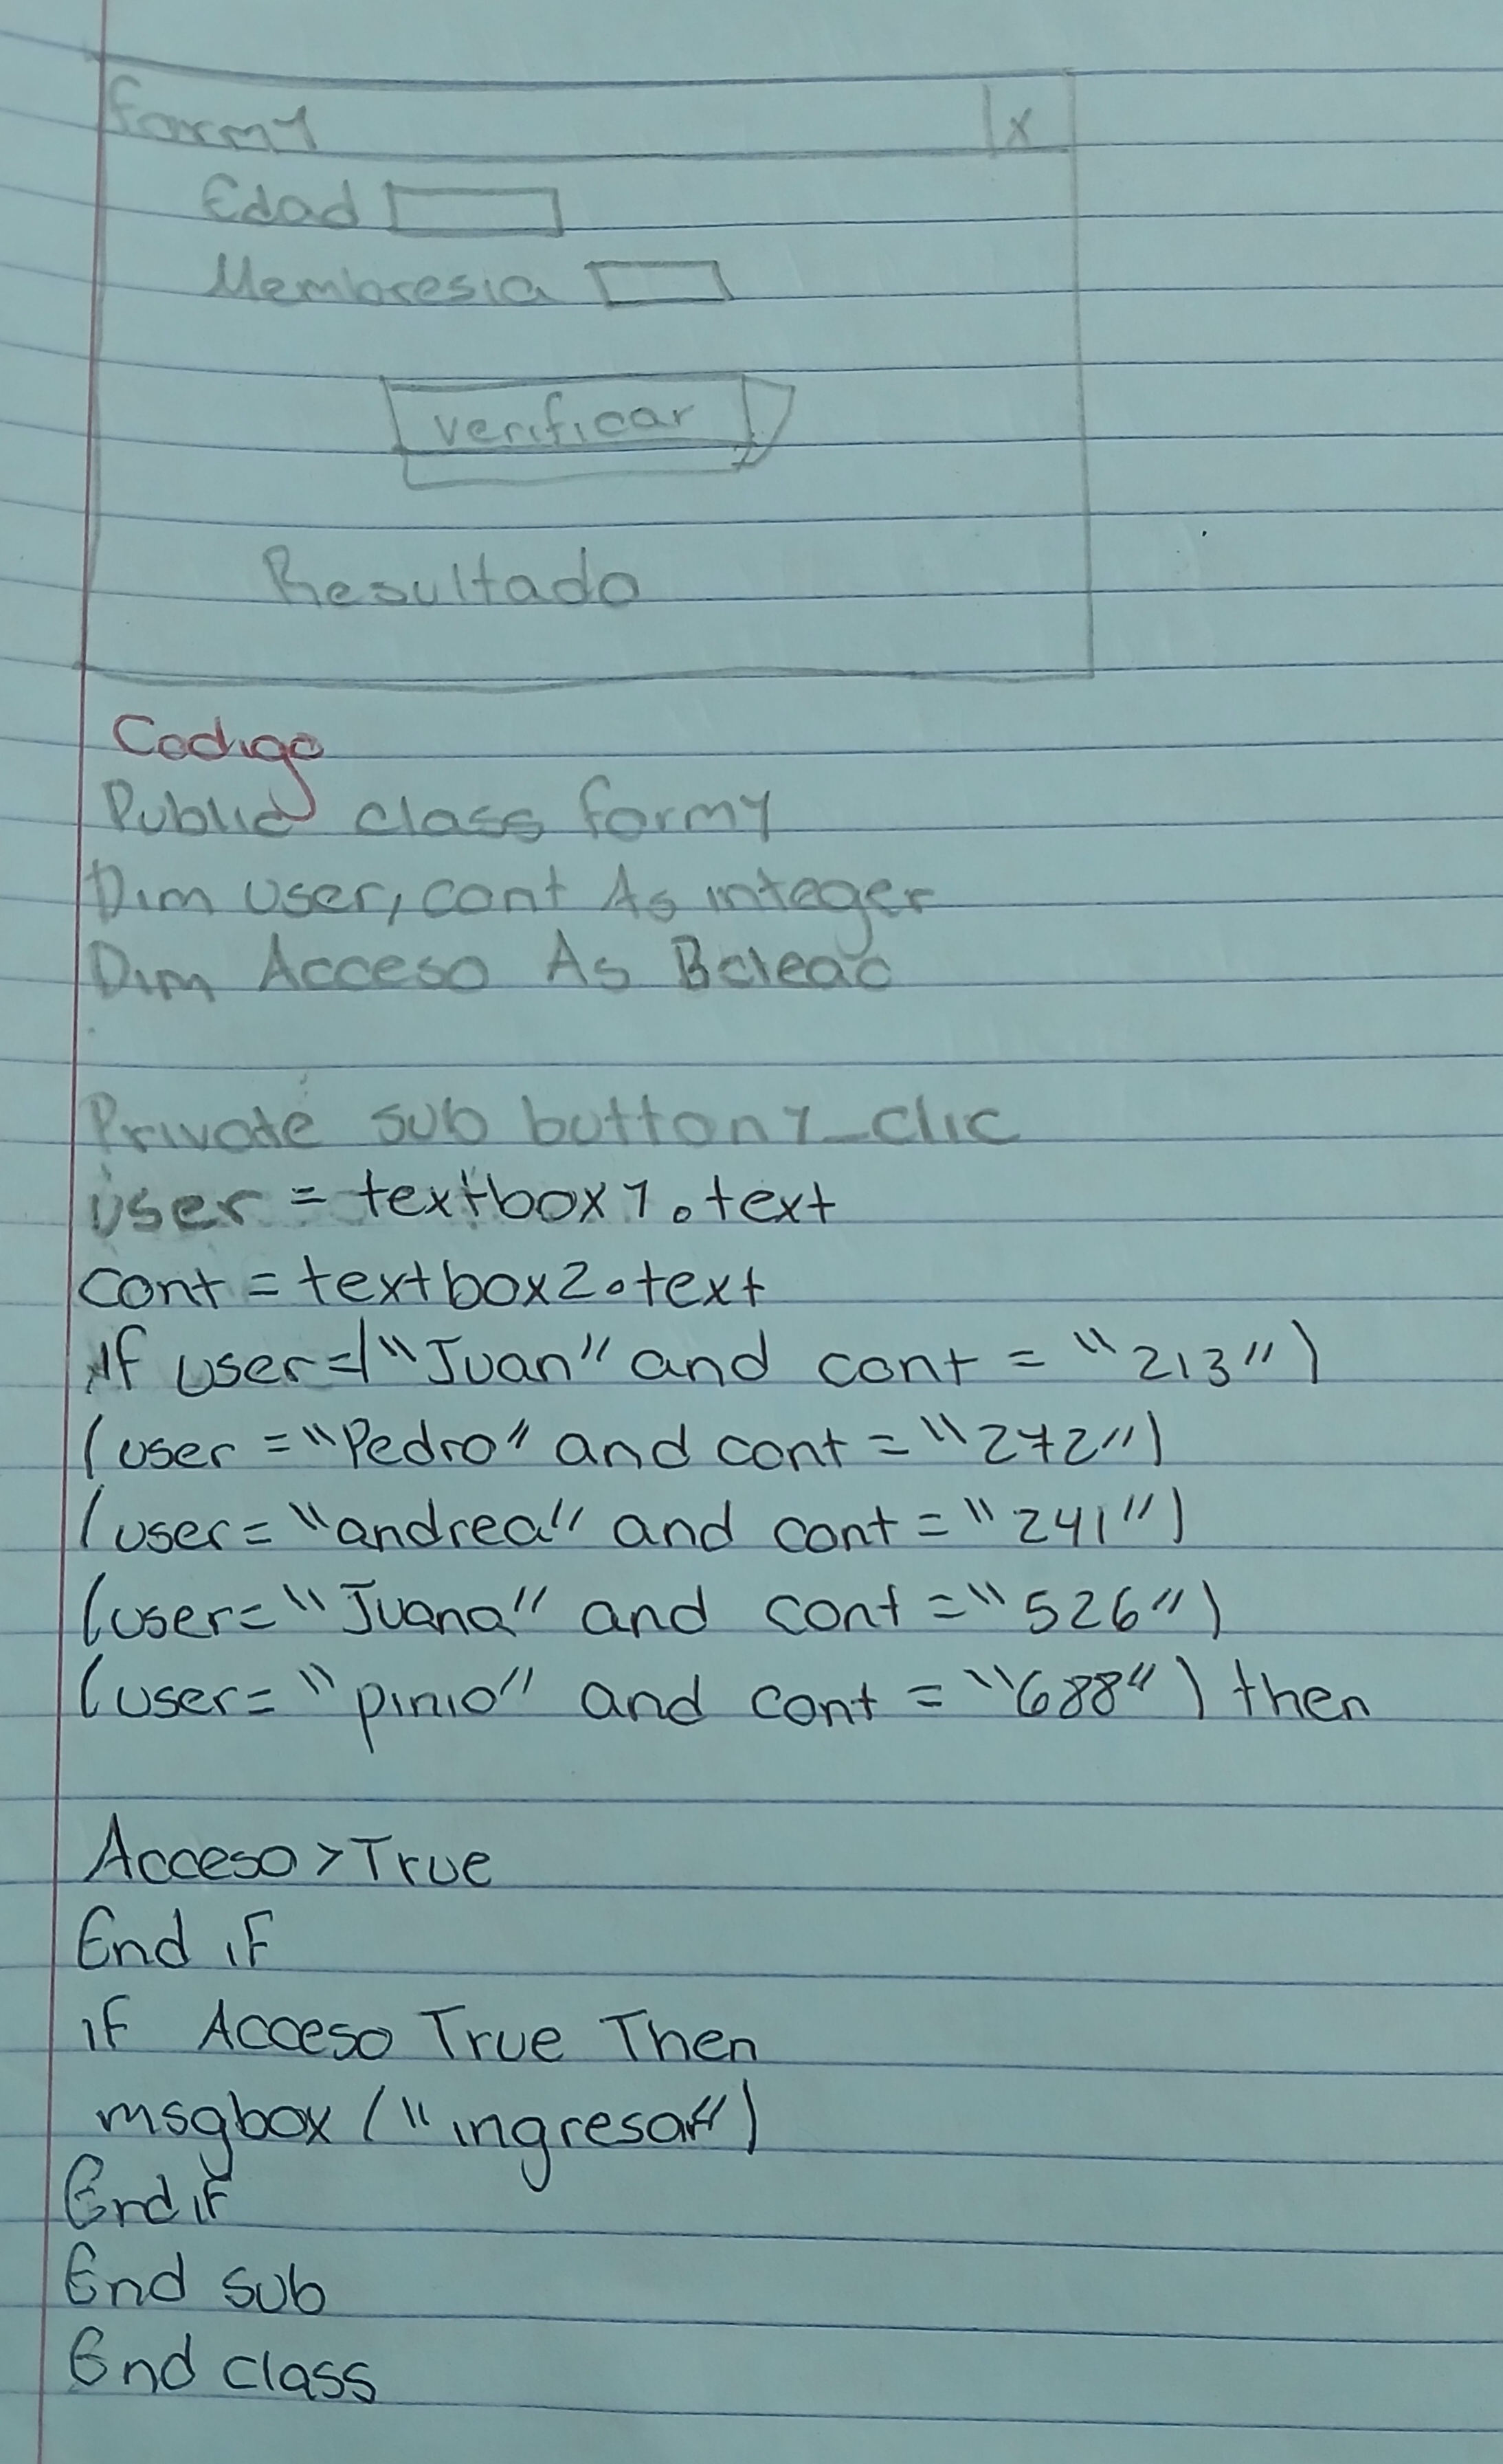 form1 x
Edad
Membresia
verificar
Resultado
Codigo
Public class form1
Dim user, cont As integer
Dim Acceso As Boleao
Private sub button1_clic
user = textbox1.text
cont = textbox2.text
If user=("Juan" and cont = "213")
(user = "Pedro" and cont = "272")
(user= "andrea" and cont = "241")
(user= "Juana" and cont = "526")
(user= "pinio" and cont = "688") then
Acceso > True
End if
if Acceso True Then
msgbox ("ingresar")
End if
End sub
End class